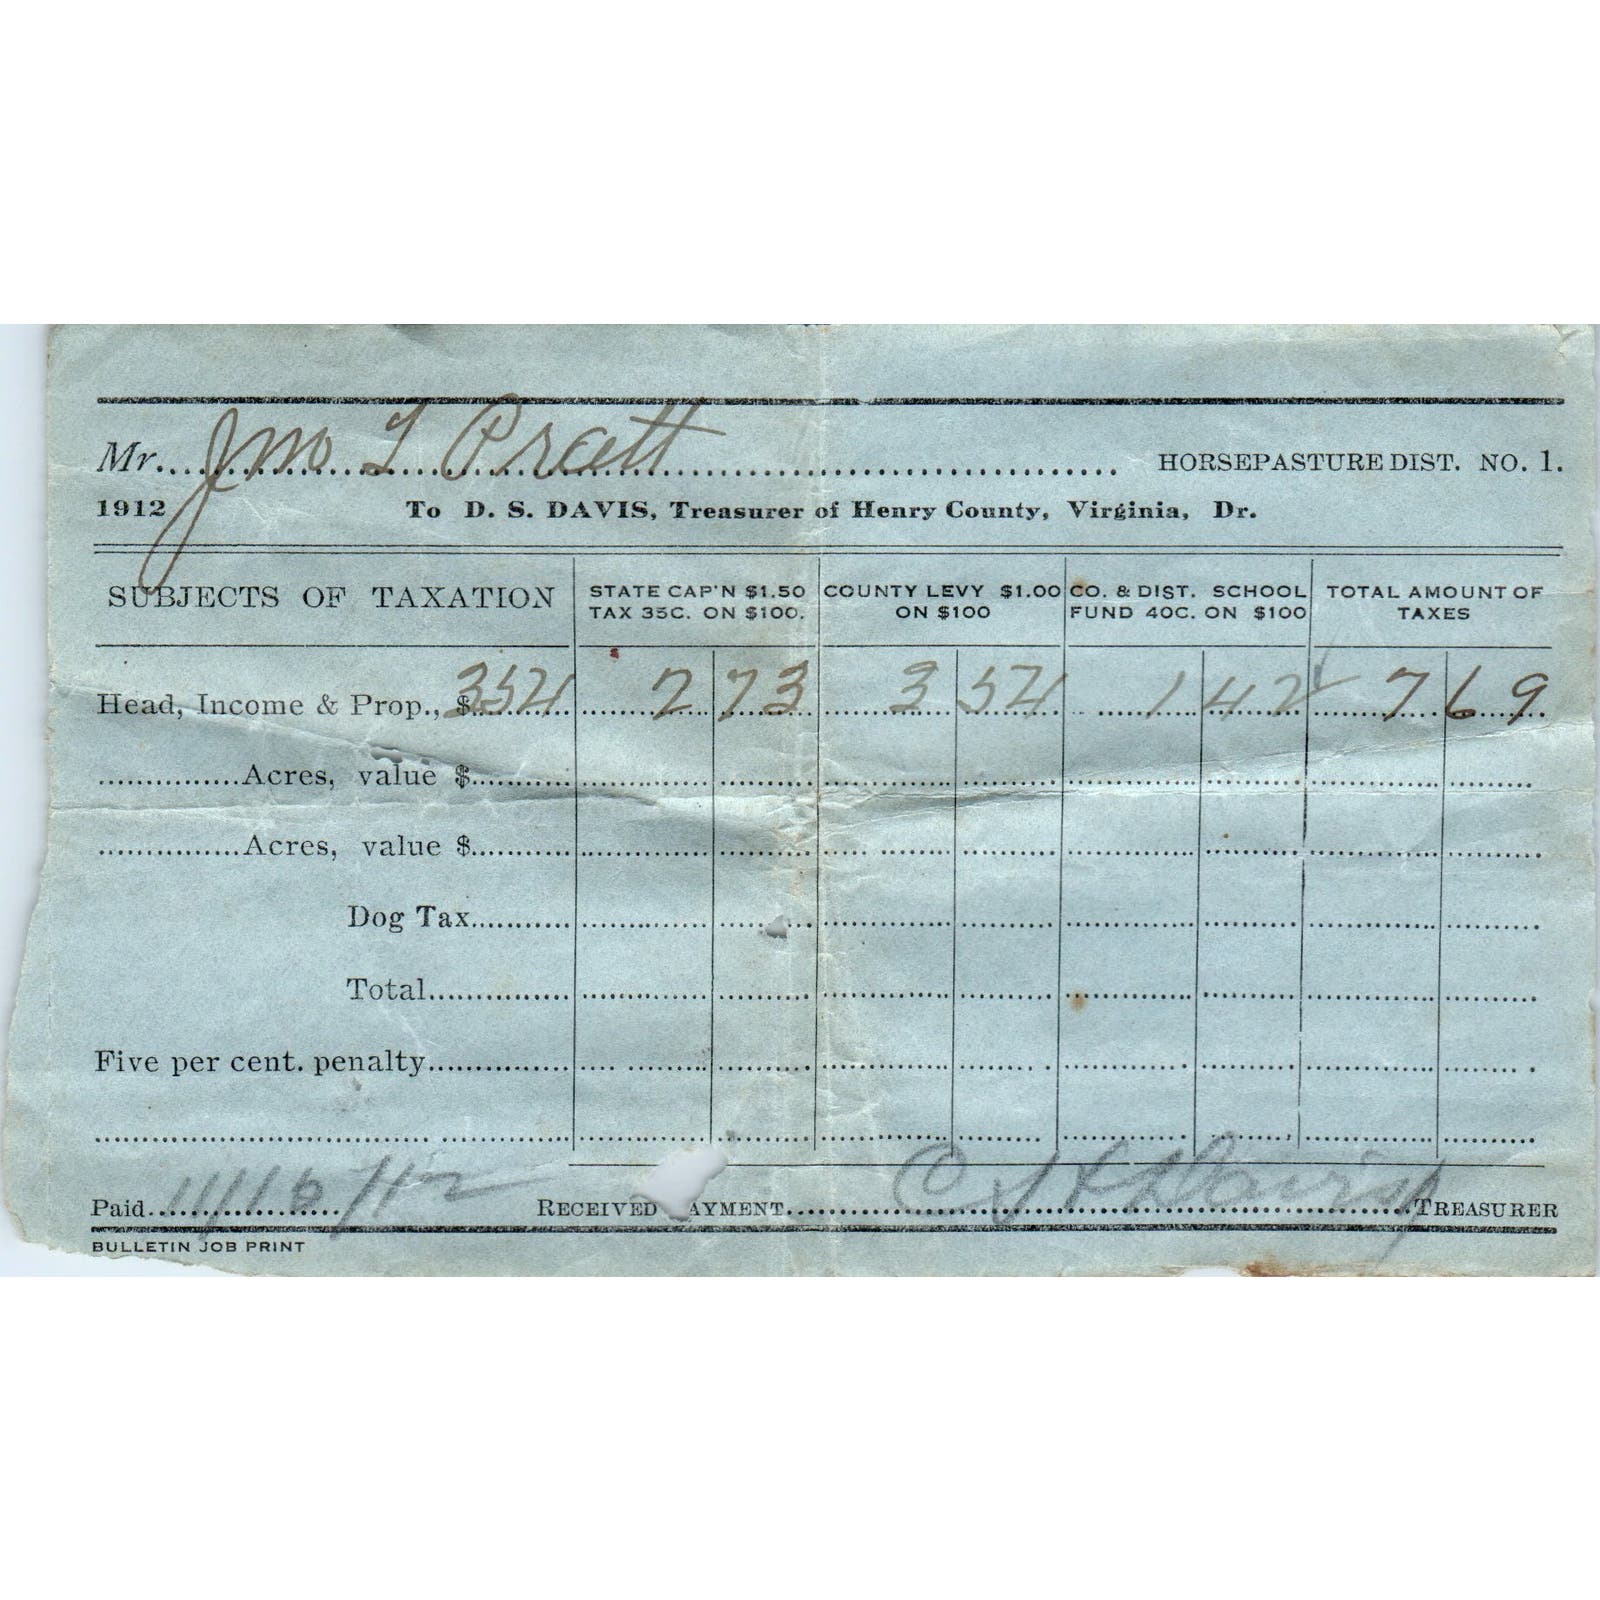 Mr. Jno T Pratt HORSEPASTURE DIST. NO. 1.
1912 To D. S. DAVIS, Treasurer of Henry County, Virginia, Dr.
SUBJECTS OF TAXATION STATE CAP'N $1.50 TAX 35C. ON $100. COUNTY LEVY $1.00 ON $100 CO. & DIST. SCHOOL FUND 40C. ON $100 TOTAL AMOUNT OF TAXES
Head, Income & Prop., $ 354 2 73 3 54 1 42 7 69
Acres, value $
Acres, value $
Dog Tax
Total
Five per cent. penalty
Paid RECEIVED AYMENT Davis TREASURER
BULLETIN JOB PRINT